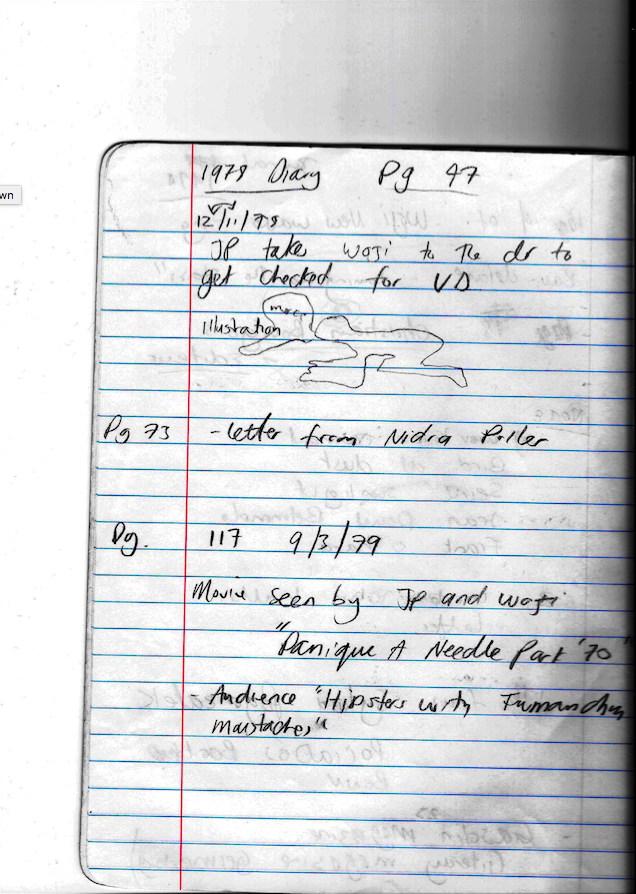 1978 Diary Pg 47
12/11/78
JP take waji to the dr to
get checked for VD
Illustration
Pg 73 - letter from Nidra Poller
Pg. 117 9/3/79
Movie seen by JP and waji
"Panique A Needle Park '70"
- Audience "Hipsters with Fumanchu
moustaches"